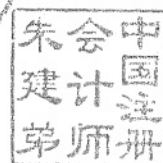 中国注册
会计师
朱建弟